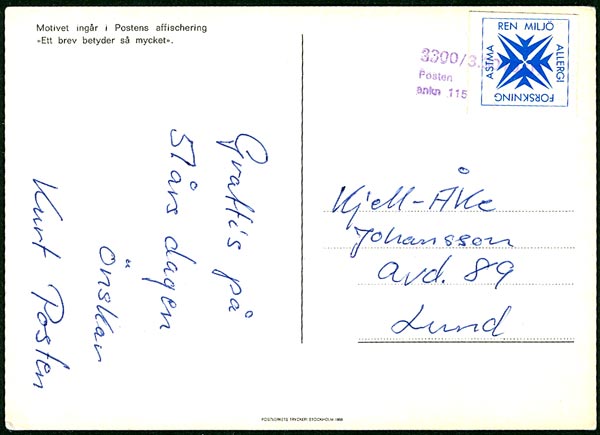 Motivet ingår i Postens affischering
»Ett brev betyder så mycket».
REN MILJÖ
ASTMA
ALLERGI
FORSKNING
Posten
ankn 115
Grattis på
51 års dagen
önskar
Kurt Posten
Kjell-Åke
Johansson
avd. 89
Lund
POSTVERKETS TRYCKERI STOCKHOLM